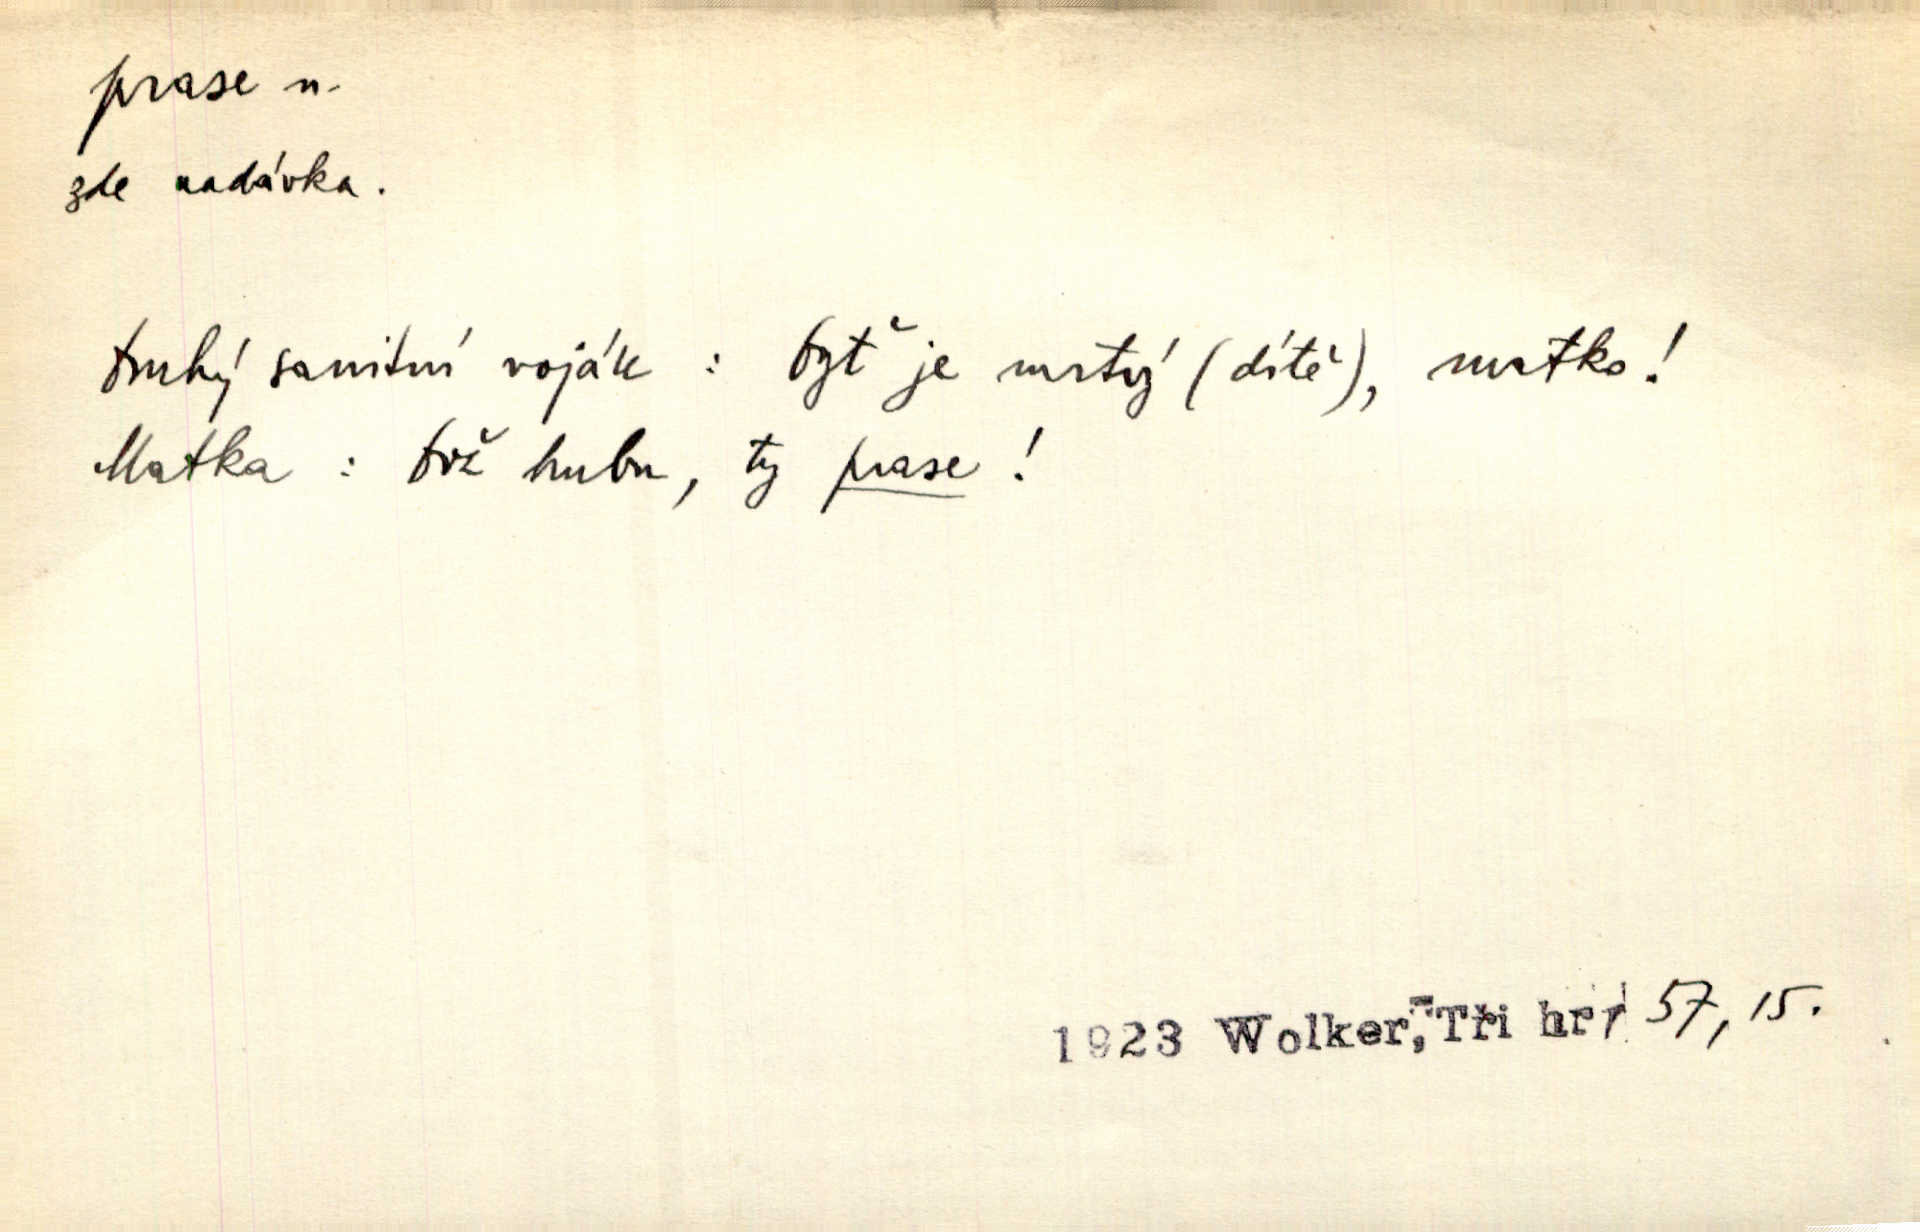 prase n.
zde nadávka.
druhý sanitní voják : Dyť je mrtvý (dítě), matko!
Matka : Drž hubu, ty prase !
1923 Wolker, Tři hry 57, 15.